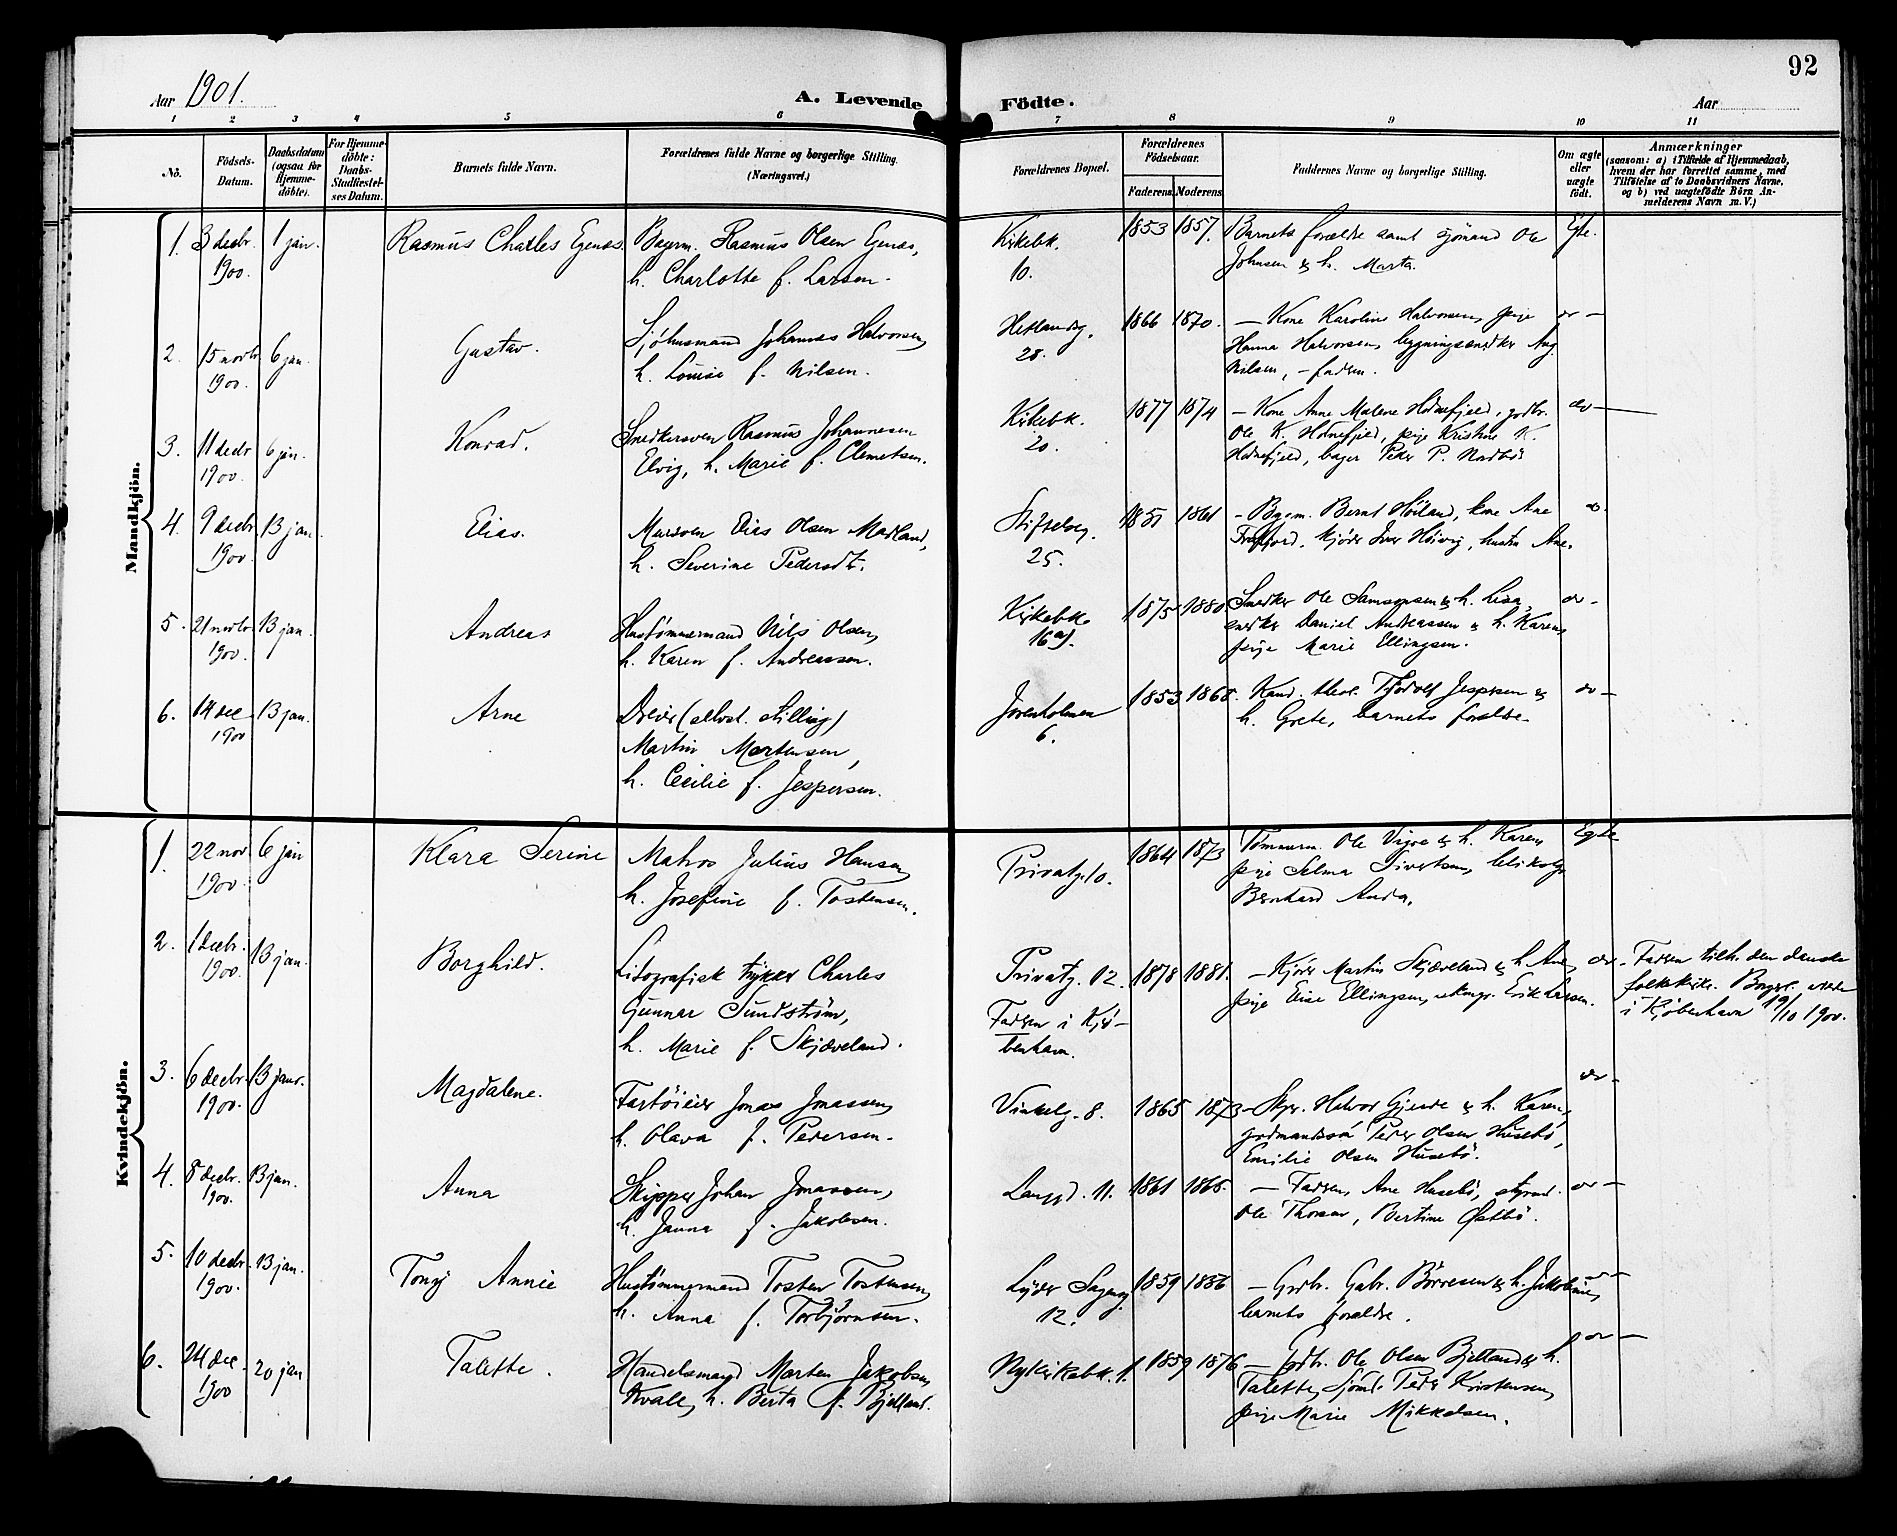 92
Aar 1901.
A. Levende Födte.
Aar
1 2 3 4 5 6 7 8 9 10 11
No.
Födsels-Datum.
Daabsdatum (ogsaa for Hjemme-döbte).
For Hjemme-döbte: Daabs-Stadfæstel-ses Datum.
Barnets fulde Navn.
Forældrenes fulde Navne og borgerlige Stilling. (Næringsvei.)
Forældrenes Bopæl.
Forældrenes Födselsaar.
Faderens. Moderens.
Faddernes Navne og borgerlige Stilling.
Om ægte eller uægte födt.
Anmærkninger
(saasom: a) i Tilfælde af Hjemmedaab,
hvem der har forrettet samme, med
Tilföielse af to Daabsvidners Navne,
og b) ved uægtefödte Börn An-
melderens Navn m. V.)
Mandkjön.
1. 3 decbr. 1900. 1 jan. Rasmus Charles Egenes. Bagerm. Rasmus Olsen Egenes,
h. Charlotte f. Larsen.
Kirkebk. 10. 1853 1857. Barnets forældre samt sjömand Ole
Johnsen & h. Marta. Egte.
2. 15 novbr 1900. 6 jan. Gustav. Sjöhusmand Johannes Halvorsen,
h. Louise f. Nilsen.
Hetlandsg. 28. 1866 1870. — Kone Karoline Halvorsen, pige
Hanna Halvorsen, bygningssnedker Aug.
Nilsen, – faderen. do —
3. 11 decbr 1900. 6 jan. Konrad. Snedkersven Rasmus Johannesen
Elvig, h. Marie f. Clemetsen.
Kirkebk. 20. 1877 1874 — Kone Anne Malene Hodnefjeld, gdbr.
Ole K. Hodnefjeld, pige Kristine K.
Hodnefjeld, bager Peder P. Nordbö do —
4. 9 decbr 1900. 13 jan. Elias. Mursven Elias Olsen Madland,
h. Severine Pedersdt.
Stiftelseg. 25. 1851 1861 – Bagerm. Bernt Höiland, kone Ane
Frafjord, kjörer Iver Höivig, hustru Ane. do.
5. 21 novbr 1900. 13 jan. Andreas Hustömmermand Nils Olsen,
h. Karen f. Andreassen.
Kirkebk. 16 a). 1875 1880 Snedker Ole Samsonsen & h. Lisa,
snedker Daniel Andreassen & h. Karen,
pige Marie Ellingsen. do —
6. 14 dec 1900 13 jan. Arne Dreier (selvst. stilling)
Martin Mortensen,
h. Cecilie f. Jespersen.
Jorenholmen 6. 1853 1865. Kand. theol. Thjodolf Jespersen &
h. Grete, barnets forældre. do —
Kvindekjön.
1. 22 nov 1900. 6 jan Klara Serine Matros Julius Hansen,
h. Josefine f. Tostensen.
Privatg. 10. 1864 1873 Tömmerm. Ole Vigre & h. Karen,
pige Selma Sivertsen,
Bernhard Anda. Egte
2. 1 decbr. 1900. 13 jan. Borghild. Litografisk trykker Charles
Gunnar Sundström,
h. Marie f. Skjæveland.
Privatg. 12. Faderen i Kjö-
benhavn. 1878 1881. — Kjörer Martin Skjæveland & h. Ane,
pige Elise Ellingsen, Erik Larsen. do – Faderen tilh. den danske
folkekirke. Borgerl. viede
i Kjöbenhavn 19/10 1900.
3. 6 decbr. 1900. 13 janr. Magdalene. Fartöieier Jonas Jonassen,
h. Olava f. Pedersen.
Vinkelg. 8. 1865 1873 – Skpr. Halvor Gjerde & h. Karen,
gdmandssön Peder Olsen Husebö,
Emilie Olsen Husebö. do –
4. 8 decbr. 1900. 13 jan. Anna Skipper Johan Jonassen,
h. Janna f. Jakobsen.
Langgd. 11. 1861 1865. — Faderen, Ane Husebö, styrmd.
Ole Thorsen, Bertine Östbö. do —
5. 10 decbr. 1900. 13 jan. Tony Annie Hustömmermand Tosten Tostensen,
h. Anna f. Torbjörnsen.
Lyder Sagensg. 12. 1859 1856 — Grdbr. Gabr. Börresen & h. Jakobine,
barnets forældre. do —
6. 24 dec 1900 20 jan Talette. Handelsmand Morten Jakobsen
Kvale, h. Berta f. Bjelland.
Nykirkebk. 1. 1859 1876 — gdbr. Ole Olsen Bjelland & h.
Talette, sjömd. Peder Kristensen,
pige Marie Mikkelsen. do —